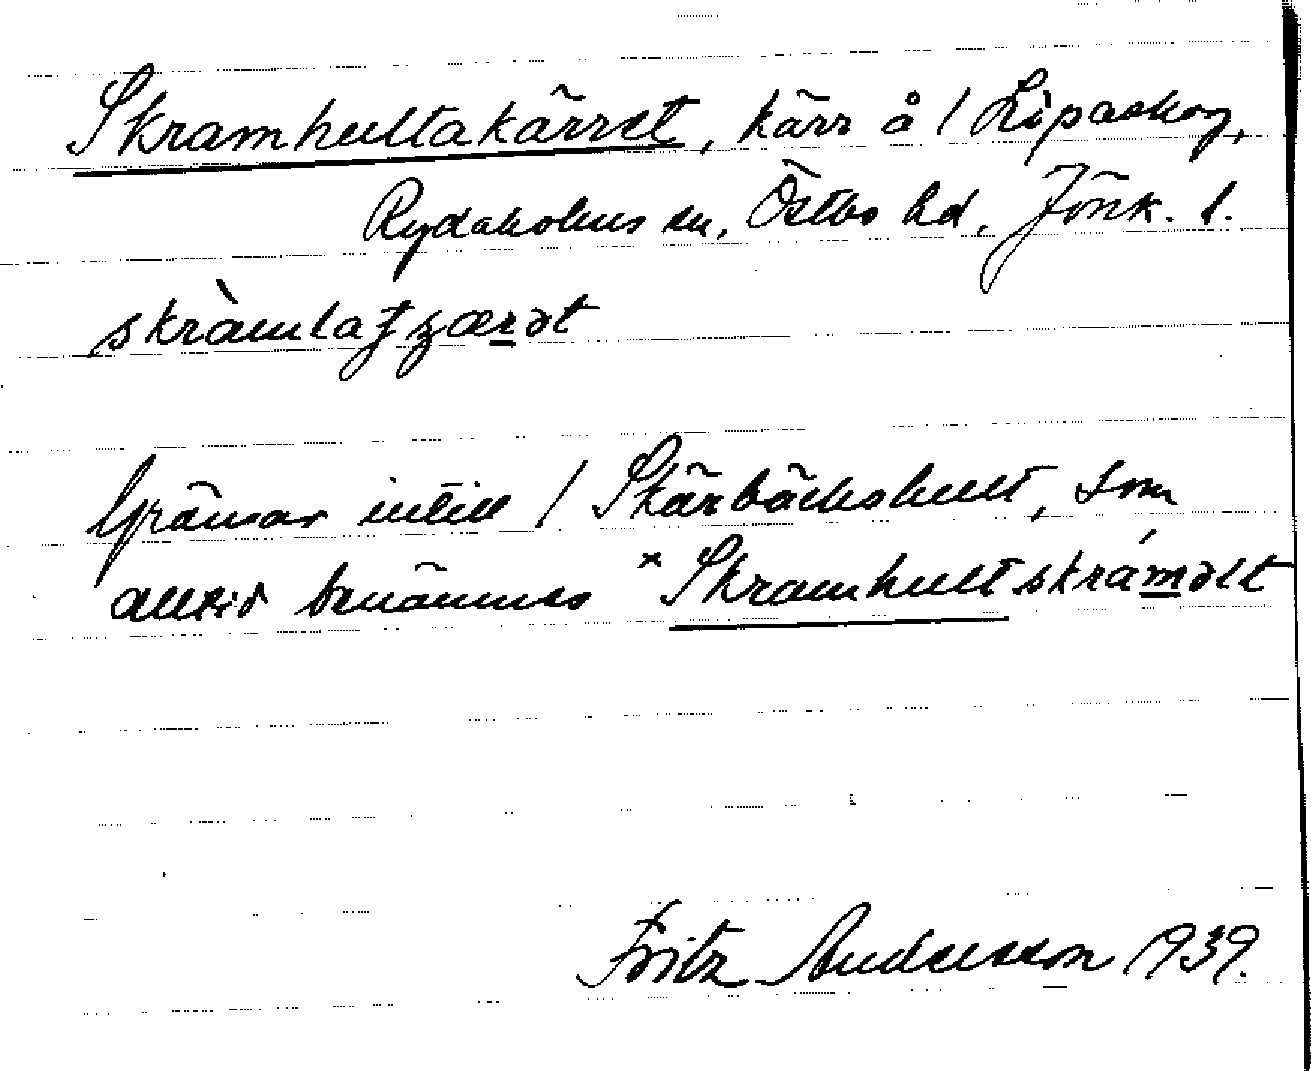 Skramhultakärret, kärr å / Lipaskog,
Rydaholms sn, Östbo hd, Jönk. l.
skràmlatʒærət
Gränsar intill / Skärbäckshult, som
alltid benämnes × Skramhult skráməlt
Fritz Andersson 1939.